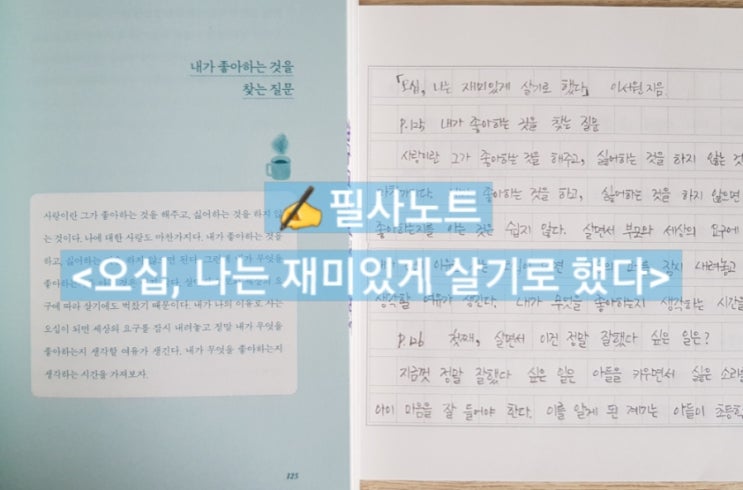 내가 좋아하는 것을
찾는 질문
사랑이란 그가 좋아하는 것을 해주고, 싫어하는 것을 하지 않
는 것이다. 나에 대한 사랑도 마찬가지다. 내가 좋아하는 것을
하고, 하지 않으면 된다. 그런데 내가 무엇을
구에 따라 살기에도 벅찼기 때문이다. 내가 나의 이유로 사는
오십이 되면 세상의 요구를 잠시 내려놓고 정말 내가 무엇을
좋아하는지 생각할 여유가 생긴다. 내가 무엇을 좋아하는지
생각하는 시간을 가져보자.
125
✍필사노트
<오십, 나는 재미있게 살기로 했다>
「오십, 나는 재미있게 살기로 했다」 이서원 지음
P.125 내가 좋아하는 것을 찾는 질문
사랑이란 그가 좋아하는 것을 해주고, 싫어하는 것을 하지 않는 것
좋아하는 것을 하고, 싫어하는 것을 하지 않으면
좋아하는지를 아는 것은 쉽지 않다. 살면서 부모와 세상의 요구에
잠시 내려놓고
생각할 여유가 생긴다. 내가 무엇을 좋아하는지 생각하는 시간을
P.126 첫째, 살면서 이건 정말 잘했다 싶은 일은?
지금껏 정말 잘했다 싶은 일은 아들을 키우면서 싫은 소리
아이 마음을 잘 들어야 한다. 이를 알게 된 계기는 아들이 초등학